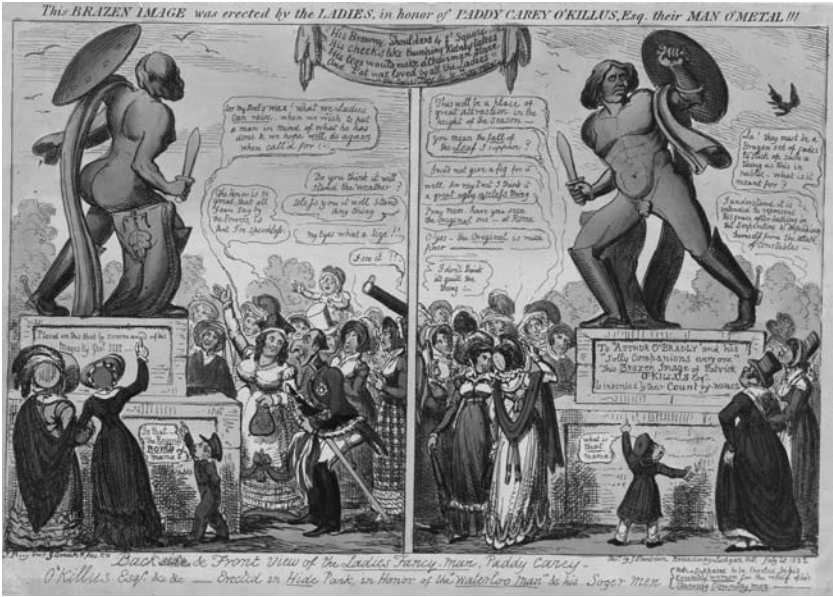 This BRAZEN IMAGE was erected by the LADIES, in honor of PADDY CAREY O'KILLUS, Esq. their MAN O'METAL!!!
His Brawny Shoulders 4 ft Square
His Cheeks like thumping Kidney tatees
His legs would make a Chairman Stare
And Pat was loved by all the Ladies
for my Part O'wax! what we ladies
can raise, when we wish to put
a man in mind of what he has
done & we hope will do again
when call'd for
Do you think it will
stand the weather?
bless you it will Stand
any thing
The Honor is so
great, that all
I can say
that I'm speechless
my Eyes what a size!!
I see it!!
This will be a place of
great attraction in the
height of the Season
You mean the fall of
the Leaf I suppose?
I would not give a fig for it
well, for my Part I think it
a great ugly useless thing
Pray Mem, have you seen
the original one at Home
O yes - the Original is much
finer
I don't think
it quite the
thing
La! they must be a
Brazen set of Ladies
to stick up such a
thing as this in
Public - what is it
meant for?
I understand, it is
intended to represent
his grace after bathing in
the Serpentine & defending
himself from the attack
of Constables
Placed on this Spot by command of his
Majesty Geoe IIII
To "ARTHOR O'BRADLY" and his
"Jolly Companions every one"
This Brazen Image of Patrick
O'KILLUS Esqr.
Is inscribed by their Country-WOMEN
Is that
BONEY
mama
what is
that
mama
Back side & Front View of the Ladies Fancy-Man, Paddy Carey-
O'Killus Esqr. &c &c — Erected in Hide Park, in Honor of the "Waterloo Man" & his Soger Men